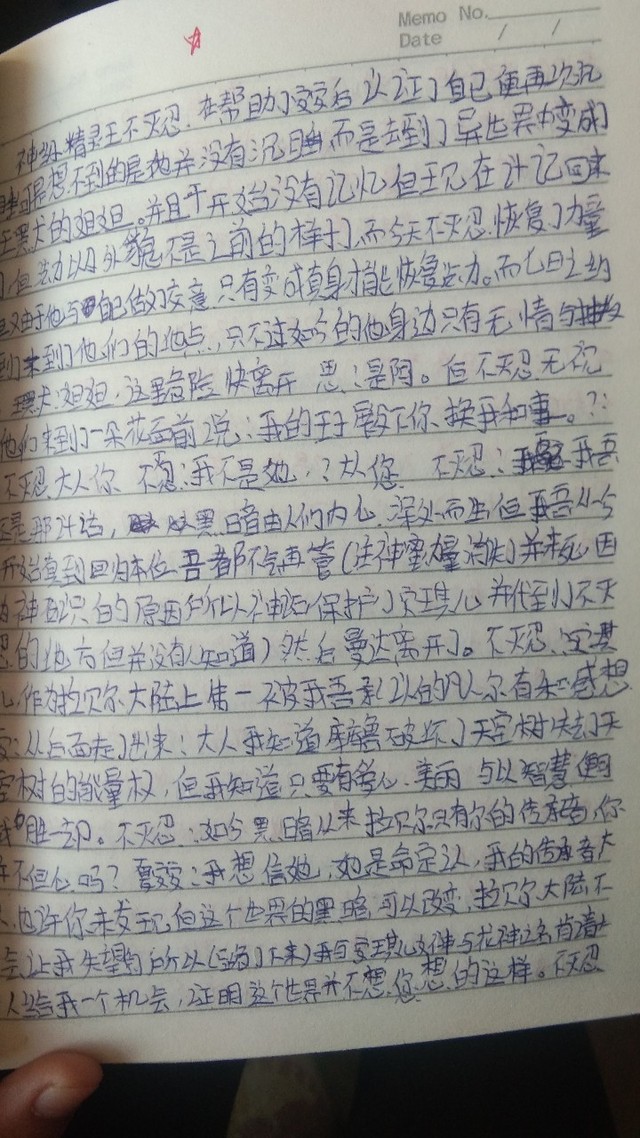 Memo No.
Date / /
神丝精灵王不灭忍.在帮助了变变后 认证了自己便再次沉
可是想不到的是她并没有沉睡而是去到了异世界中变成
黑犬的姐姐.并且千开始没有记忆但现在才记回来
但功以外貌不是之前的样子,而今天不灭忍.恢复了力量
又由于他与自己做了交意.只有变成真身才能恢复力.而七日之约
来到了他们的地点.只不过如今的他身边只有无情与
犬:姐姐,这里危险快离开 思:是阿。但不灭忍无视
他们来到了一朵花面前说:我的王子殿下你.换我和事。?:
不灭忍大人你 不忍:我不是她,?:大.您 不灭忍:我吾
是那汁话, 黑暗由人们内心.深处而生但我吾从今
开始直到回归本位吾都不会再管(注神.量消失)并未死因
神识的原因所以神后保护了安琪儿并代到了不灭
忍的地方但并没有人知道)然后曼达离开了。不灭忍:安琪
儿.作为拉贝尔大陆上唯一一被我吾承认的凡人尔有和感想
变:从后面走了出来:大人我知道摩鲁破坏了天空树失去了天
空树的能量权,但我知道只要有爱心.美丽 与以智慧便可
一切。不灭忍:如今黑暗从来拉贝尔只有尔的传承者,你
不但心吗?夏变:我想信她,她是命定认,我的传承者大
也许你未发现但这个世界的黑暗可以改变,拉贝尔大陆不
会让我失望的所以(跪了下来)我与安琪儿女神与花神之名肯请大
人给我一个机会,证明这个世界并不想.您.想的这样。不灭忍